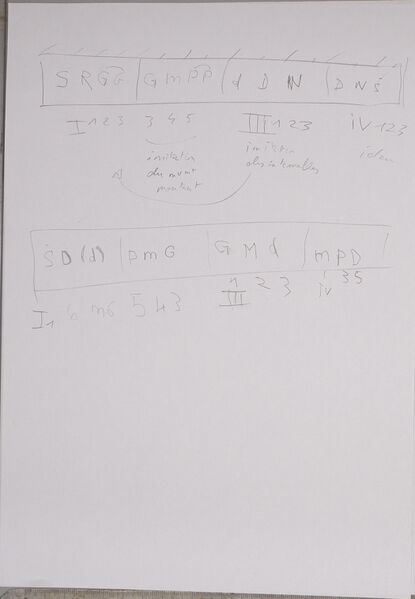 S R G G | G m P P | d D N | D N Ṡ
I 1 2 3 3 4 5 III 1 2 3 IV 1 2 3
imitation imitation idem
du mvmt des intervalles
montant
Ṡ D (d) | P m G | G M d | m P D
I 1 6 m6 5 4 3 1 2 3 1 3 5
III IV